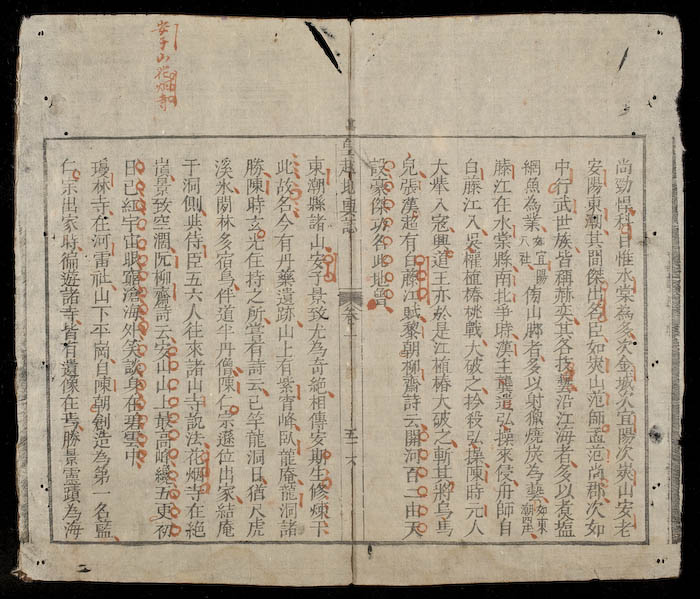 尚勁悍科目惟水棠為多次金城次宜陽次夾山安老
安陽東潮其間傑出名臣如夾山范師孟范尚郡次如
中行武世族皆稱赫奕其各技藝沿江海者多以煮塩
網魚為業如宜陽八社侑山鄉者多以射獵燒炭為藝如東潮
藤江在水棠縣南北爭時漢王龔遣弘操來侵舟師自
白藤江入吳權植樁挑戰大破之擒殺弘操陳時元人
大舉入冦興道王亦於是江植樁大破之斬其將烏馬
兒張漢超有白藤江賦黎朝柳齋詩云開河百二由天
設豪傑功名此地曾
皇越地輿誌 卷一 五十六
東潮縣諸山安子景致尤為奇絕相傳安期生修煉于
此故名今有丹藥遺跡山上有紫霄峰臥龍庵龍洞諸
勝陳時玄光住持之所嘗有詩云已竿龍洞日猶尺虎
溪氷閑林多宿鳥伴道半丹僧陳仁宗遜位出家結庵
于洞側與侍臣五六人往來諸山寺説法花烟寺在絕
嵿景致空濶阮柳齋詩云安山山上最高峰纔五更初
日已紅宇宙眼窮滄海外笑談身在碧雲中
瓊林寺在河雷社山下平崗自陳朝創造為第一名藍
仁宗出家時徧遊諸寺皆有遺像在焉勝景靈蹟為海
安子山花烟寺